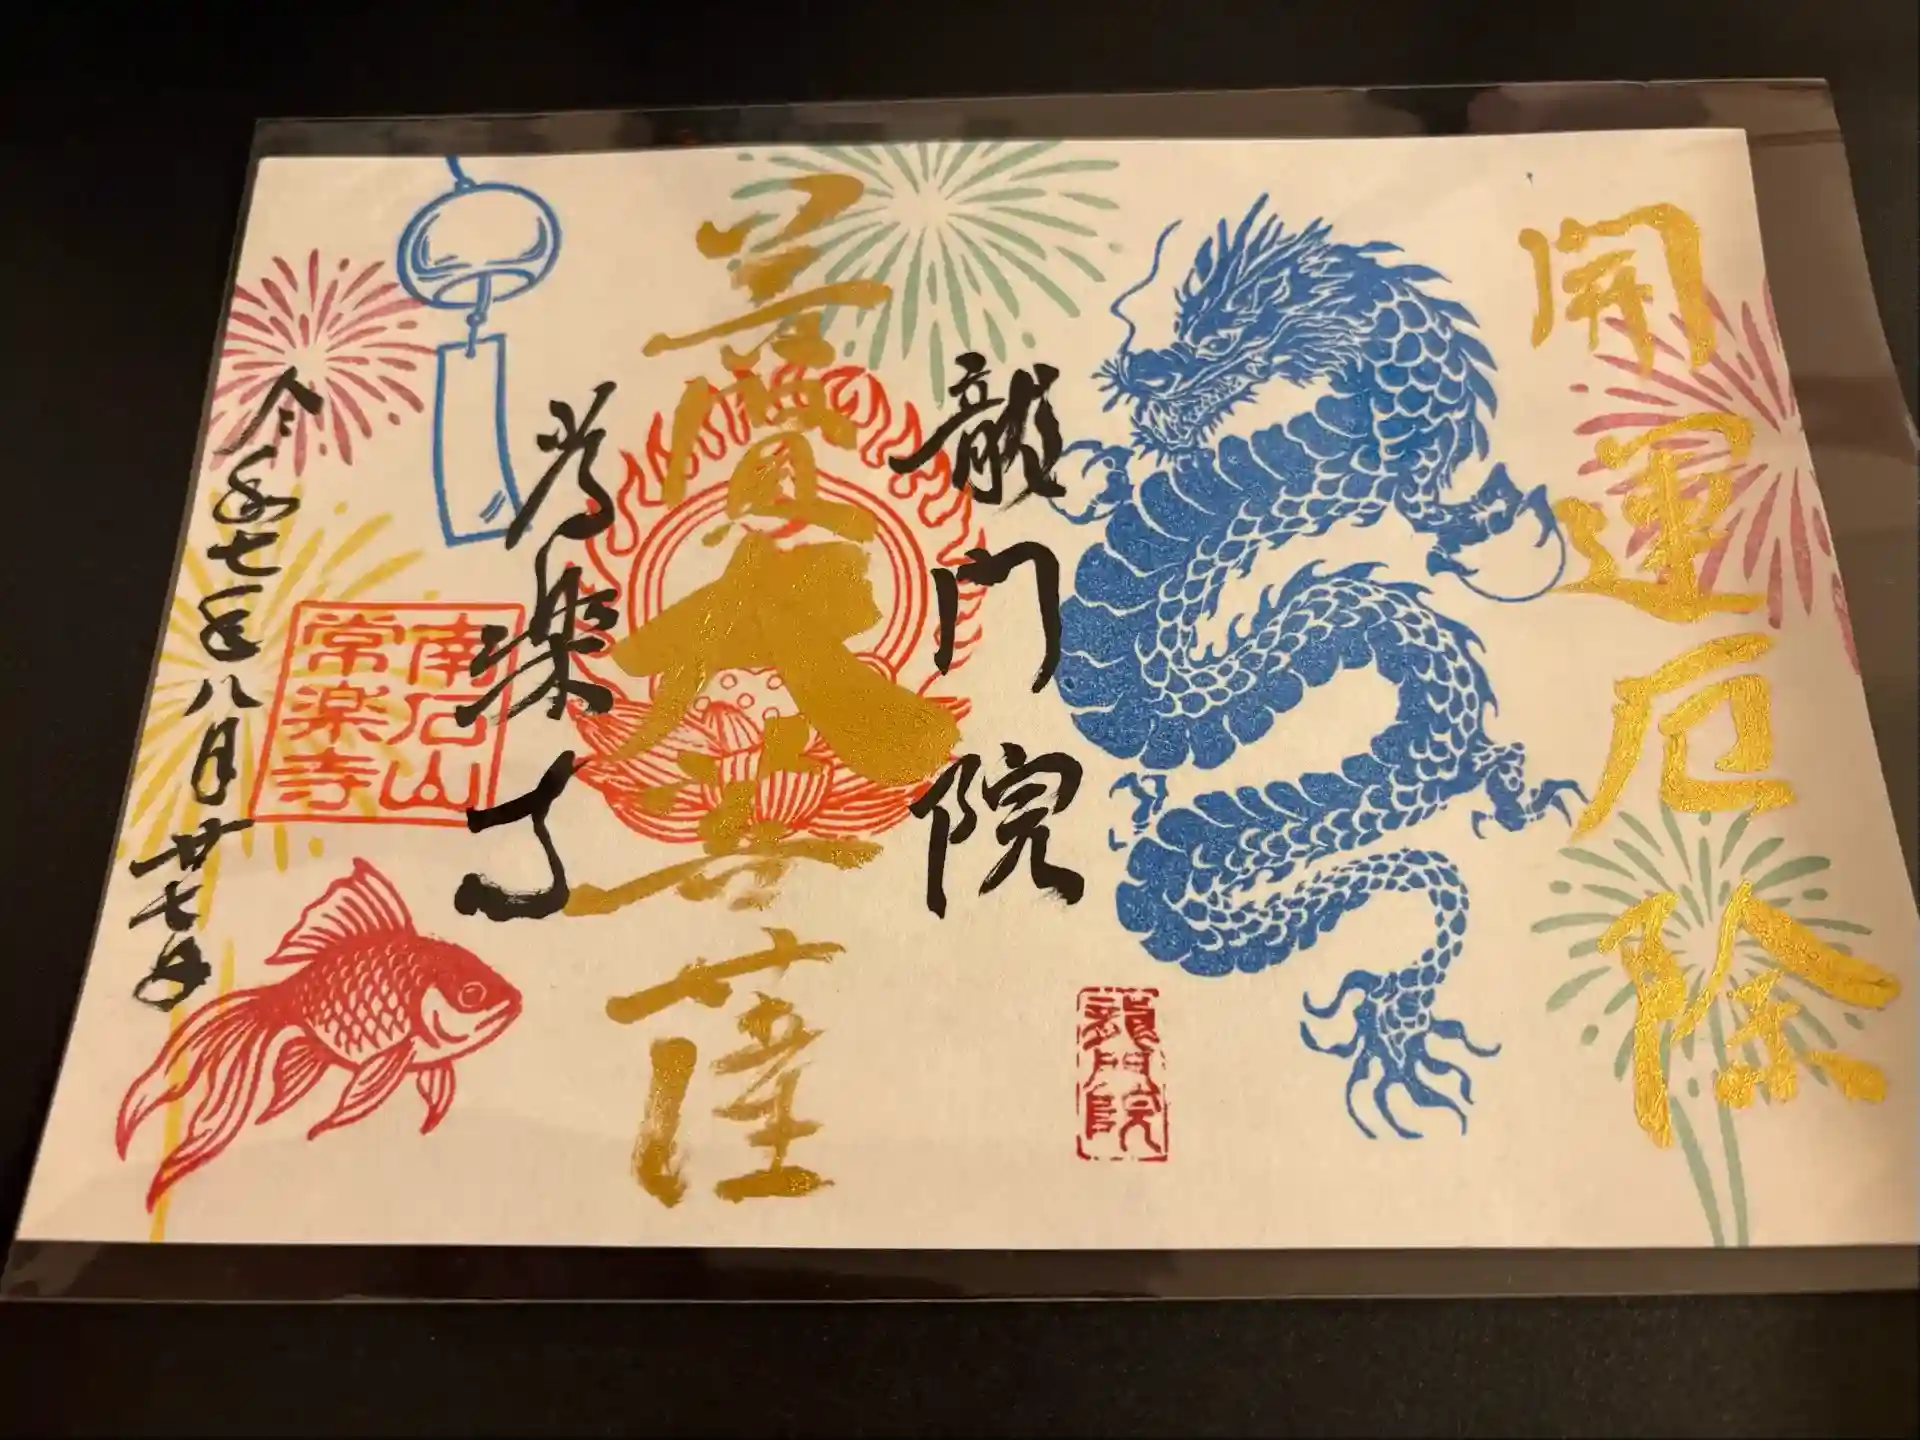 開運厄除
龍門院
龍門院
普賢大菩薩
常楽寺
南石山
常楽寺
令和七年八月廿七日